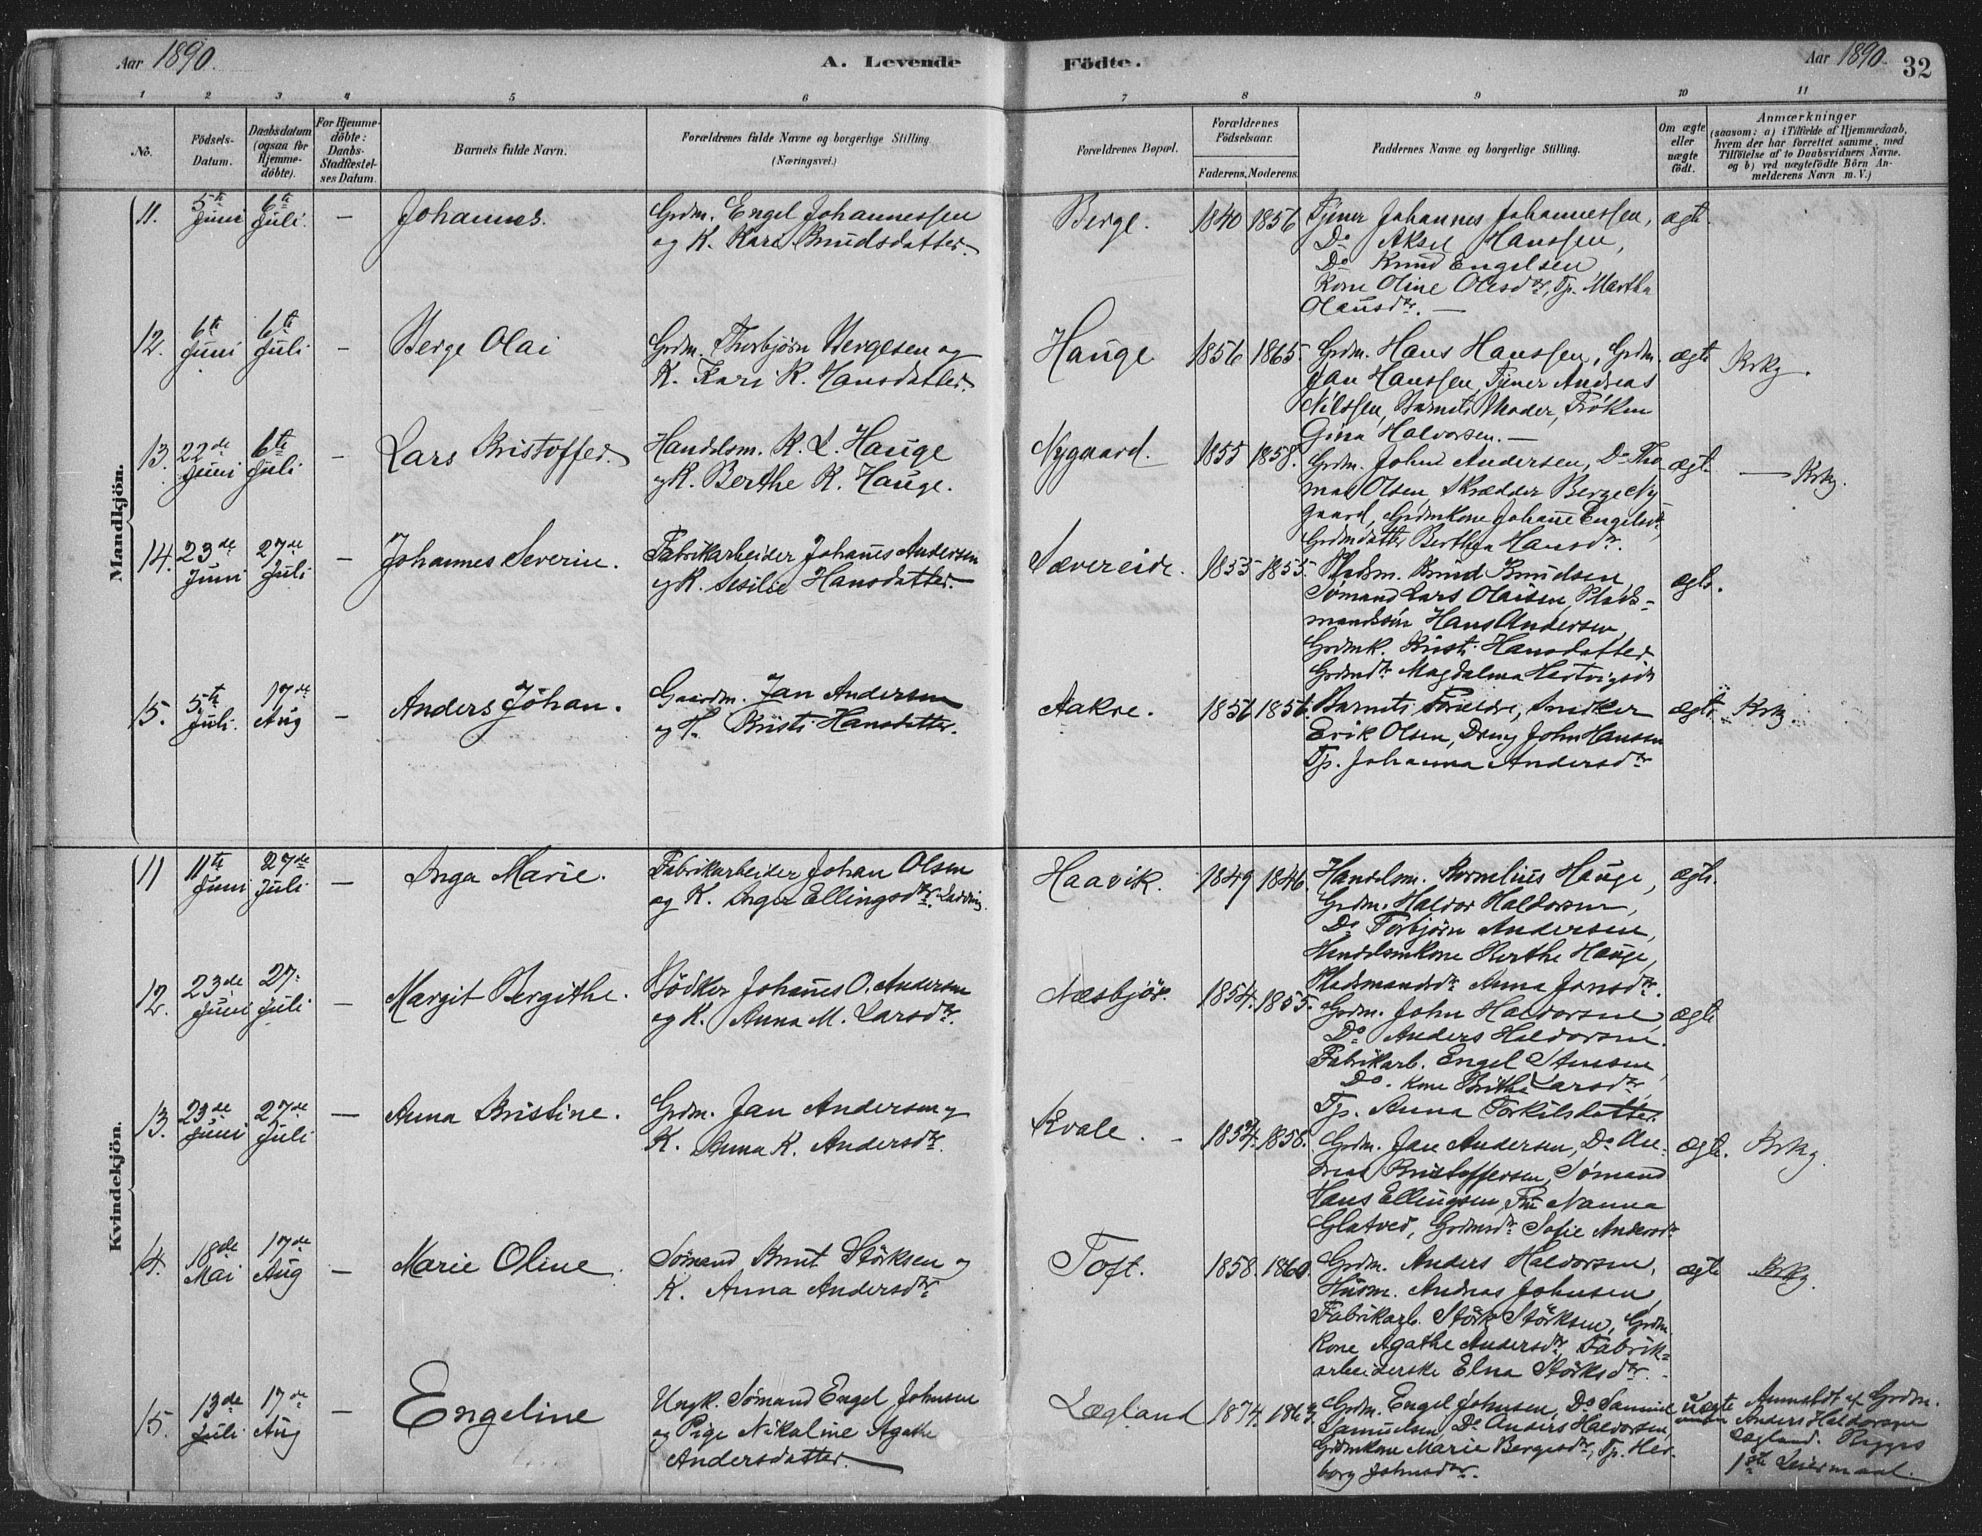 Aar 1890.
A. Levende Födte.
Aar 1890.
32
1 2 3 4 5 6 7 8 9 10 11
No.
Födsels-Datum.
Daabsdatum (ogsaa for Hjemme-döbte).
For Hjemme-döbte: Daabs-Stadfæstel-ses Datum.
Barnets fulde Navn.
Forældrenes fulde Navne og borgerlige Stilling (Næringsvei.)
Forældrenes Bopæl.
Forældrenes Födselsaar.
Faderens. Moderens.
Faddernes Navne og borgerlige Stilling.
Om ægte eller uægte födt.
Anmærkninger
(saasom: a) i Tilfælde af Hjemmedaab, hvem der har forrettet samme, med Tilföielse af to Daabsvidners Navne. og b) ved uægtefödte Börn An-melderens Navn m. V.)
Mandkjön.
11. 5te Juni 6te Juli. — Johannes.
Grdm. Engel Johannessen
og K. Kari Knudsdatter.
Berge. 1840 1856
Tjener Johannes Johannessen,
Do Aksel Hanssen,
Do Knud Engelsen
Kone Oline Olesdtr, Tp. Martha
Olausdtr. —
ægte.
12. 6te Juni 6te Juli — Berge Olai
Grdm. Thorbjørn Bergesen og
K. Kari K. Hansdatter.
Hauge 1856 1865
Grdm. Hans Hanssen, Grdm.
Jan Hanssen, Tjener Andreas
Nilssen, Barnets Moder, Frøken
Gina Halvorsen. —
ægte Krkg.
13. 22de Juni 6te Juli — Lars Kristoffer.
Handelsm. K. L. Hauge
og K. Berthe K. Hauge.
Nygaard. 1855 1858.
Grdm. John Andersen, Do Tho-
mas Olsen, Skrædder Berge Ny-
gaard, Grdmkone Johanne Engelsdtr,
Grdmdatter Berthea Hansdtr.
ægte — Krkg.
14. 23de Juni 27de Juli — Johannes Severin.
Fabrikarbeider Johannes Andersen
og K. Sesilie Hansdatter.
Sævereide. 1853 1855.
Pladsm. Knud Knudsen,
Sømand Lars Olaisen, Plads-
mandssøn Hans Andersen,
Grdmk. Kristi Hansdatter
Grdmdtr Magdalena Hartvigsdtr
ægte.
15. 5te Juli. 17de Aug — Anders Johan.
Gaardm. Jan Andersen
og K. Kristi Hansdatter.
Aakre. 1856 1856.
Barnets Forældre, Snedker
Erik Olsen, Dreng John Hansen
Tp. Johanna Andersdtr
ægte Krkg.
Kvindekjön.
11 11te Juni 27de Juli — Inga Marie.
Fabrikarbeider Johan Olsen
og K. Inger Ellingsdtr
Haavik. 1849 1846.
Handelsm. Kornelius Hauge,
Grdm. Haldor Haldorsen,
Do Torbjørn Andersen,
Handelsmkone Berthe Hauge,
Pladsmandsdtr Anna Jansdtr.
ægte.
12. 23de Juni 27. Juli — Margit Bergithe.
Bødker Johannes O. Andersen
og K. Anna M. Larsdtr.
Næsbjør. 1854. 1855.
Grdm. John Haldorsen,
Do Anders Haldorsen.
Fabrikarb. Engel Stensen,
Do. Kone Brithe Larsdtr,
Tp. Anna Torkilsdatter.
ægte
13. 23de Juni 27de Juli — Anna Kristine.
Grdm. Jan Andersen og
K. Anna K. Andersdtr.
Kvale. 1854. 1858.
Grdm. Jan Andersen, Do An-
dreas Kristoffersen, Sømand
Hans Ellingsen, Fru Nanna
Glatved, Grdmsdtr Sofie Andersdtr
ægte. Krkg.
14. 18de Mai 17de Aug — Marie Oline
Sømand Knut Størksen og
K. Anna Andersdtr.
Toft. 1858. 1860.
Grdm. Anders Haldorsen,
Husm. Andreas Johnsen
Fabrikarb. Størk Størksen, Grdm
kone Agathe Andersdtr, Fabrik-
arbeiderske Elna Størksdtr.
ægte Krkg
15. 13de Juli 17de Aug — Engeline
Ungk. Sømand Engel Johnsen
og Pige Nikoline Agathe
Andersdatter.
Lægland 1874. 1863.
Grdm. Engel Johnsen, Do Samuel
Samuelsen, Do Anders Haldorsen,
Grdmkone Marie Bergesdtr, Tp. Her-
borg Johnsdtr.
uægte
Anmeldt af Grdm.
Anders Haldorsen
Lægland. Begges
1ste Leiermaal.